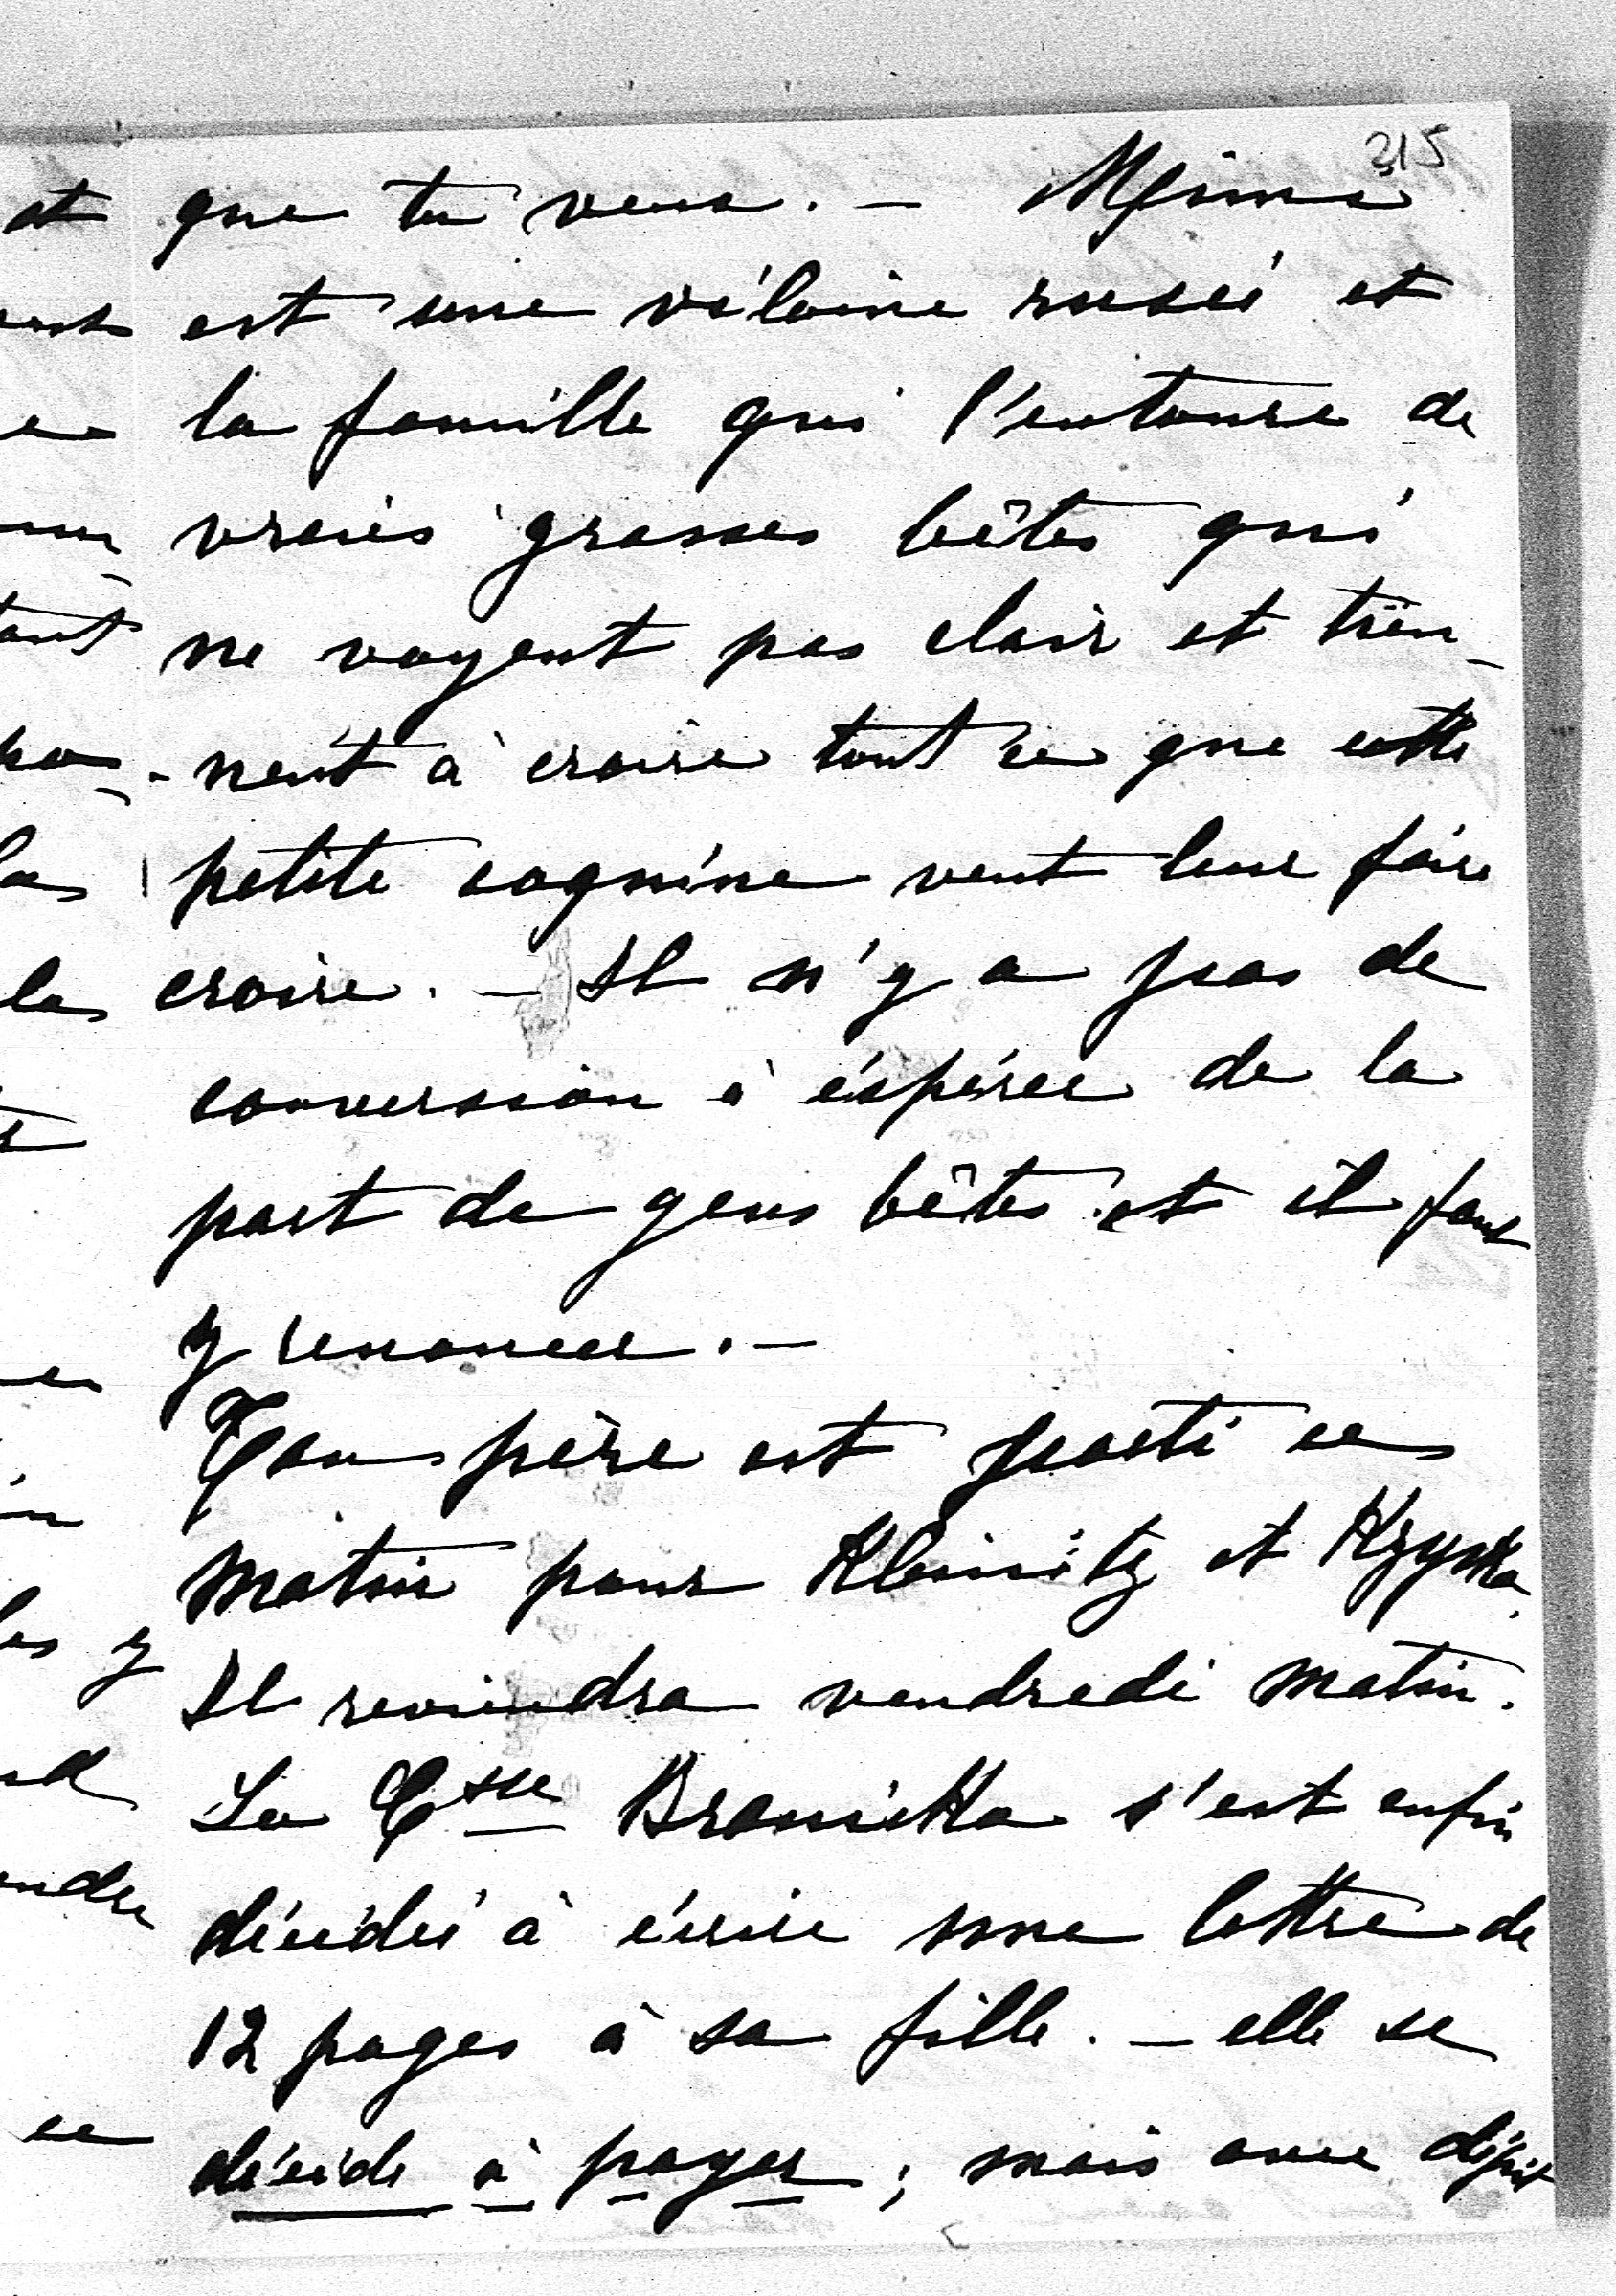 315
que tu veux. — Mimi
est une vilaine rusée et
la famille qui l'entoure de
vraies grosses bêtes qui
ne voyent pas clair et tien-
-nent à croire tout ce que cette
petite coquine veut leur faire
croire. — Il n'y a pas de
conversion à éspérer de la
part de gens bêtes et il faut
y renoncer. —
Ton père est parti ce
matin pour Kleinitz et Krzyska.
Il reviendra vendredi matin.
La Csse Branicka s'est enfin
décidée à écrire une lettre de
12 pages à sa fille. — elle se
décide à payer ; mais avec dépit